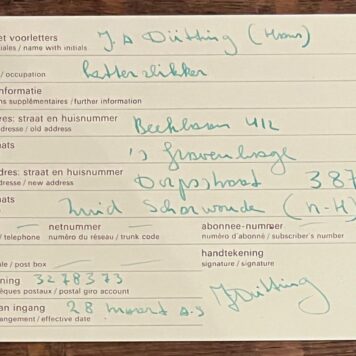 et voorletters
iales / name with initials
J. A Dütting (Hans)
/ occupation
Letterzetter
nformatie
ns supplémentaires / further information
res: straat en huisnummer
dresse / old address
412
aats
's Gravenhage
dres: straat en huisnummer
dresse / new address
Dorpsstraat 387
aats
Zuid Scharwoude (N-H)
netnummer
abonnee-nummer
/ telephone
numéro du réseau / trunk code
numéro d'abonné / subscriber's number
le / post box
handtekening
signature / signature
ning
èques postaux / postal giro account
3278373
JDütting
an ingang
angement / effective date
28 maart a.s